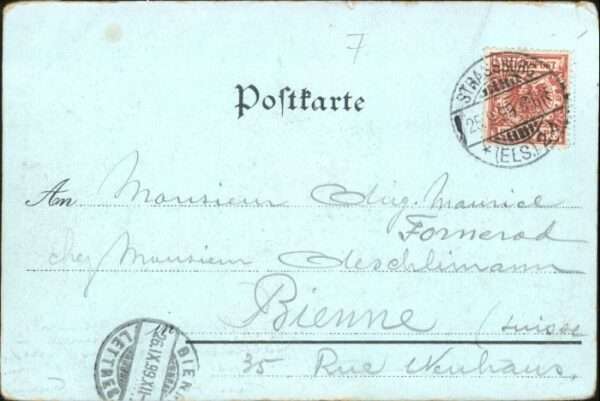 7
Postkarte
STRASSBURG
*(ELS.)
An Monsieur Aug. Maurice
Fornerod
chez Monsieur Aeschlimann
Bienne (Suisse
35 Rue Neuhaus.
BIEN
26.IX.99.XII
LETTRES